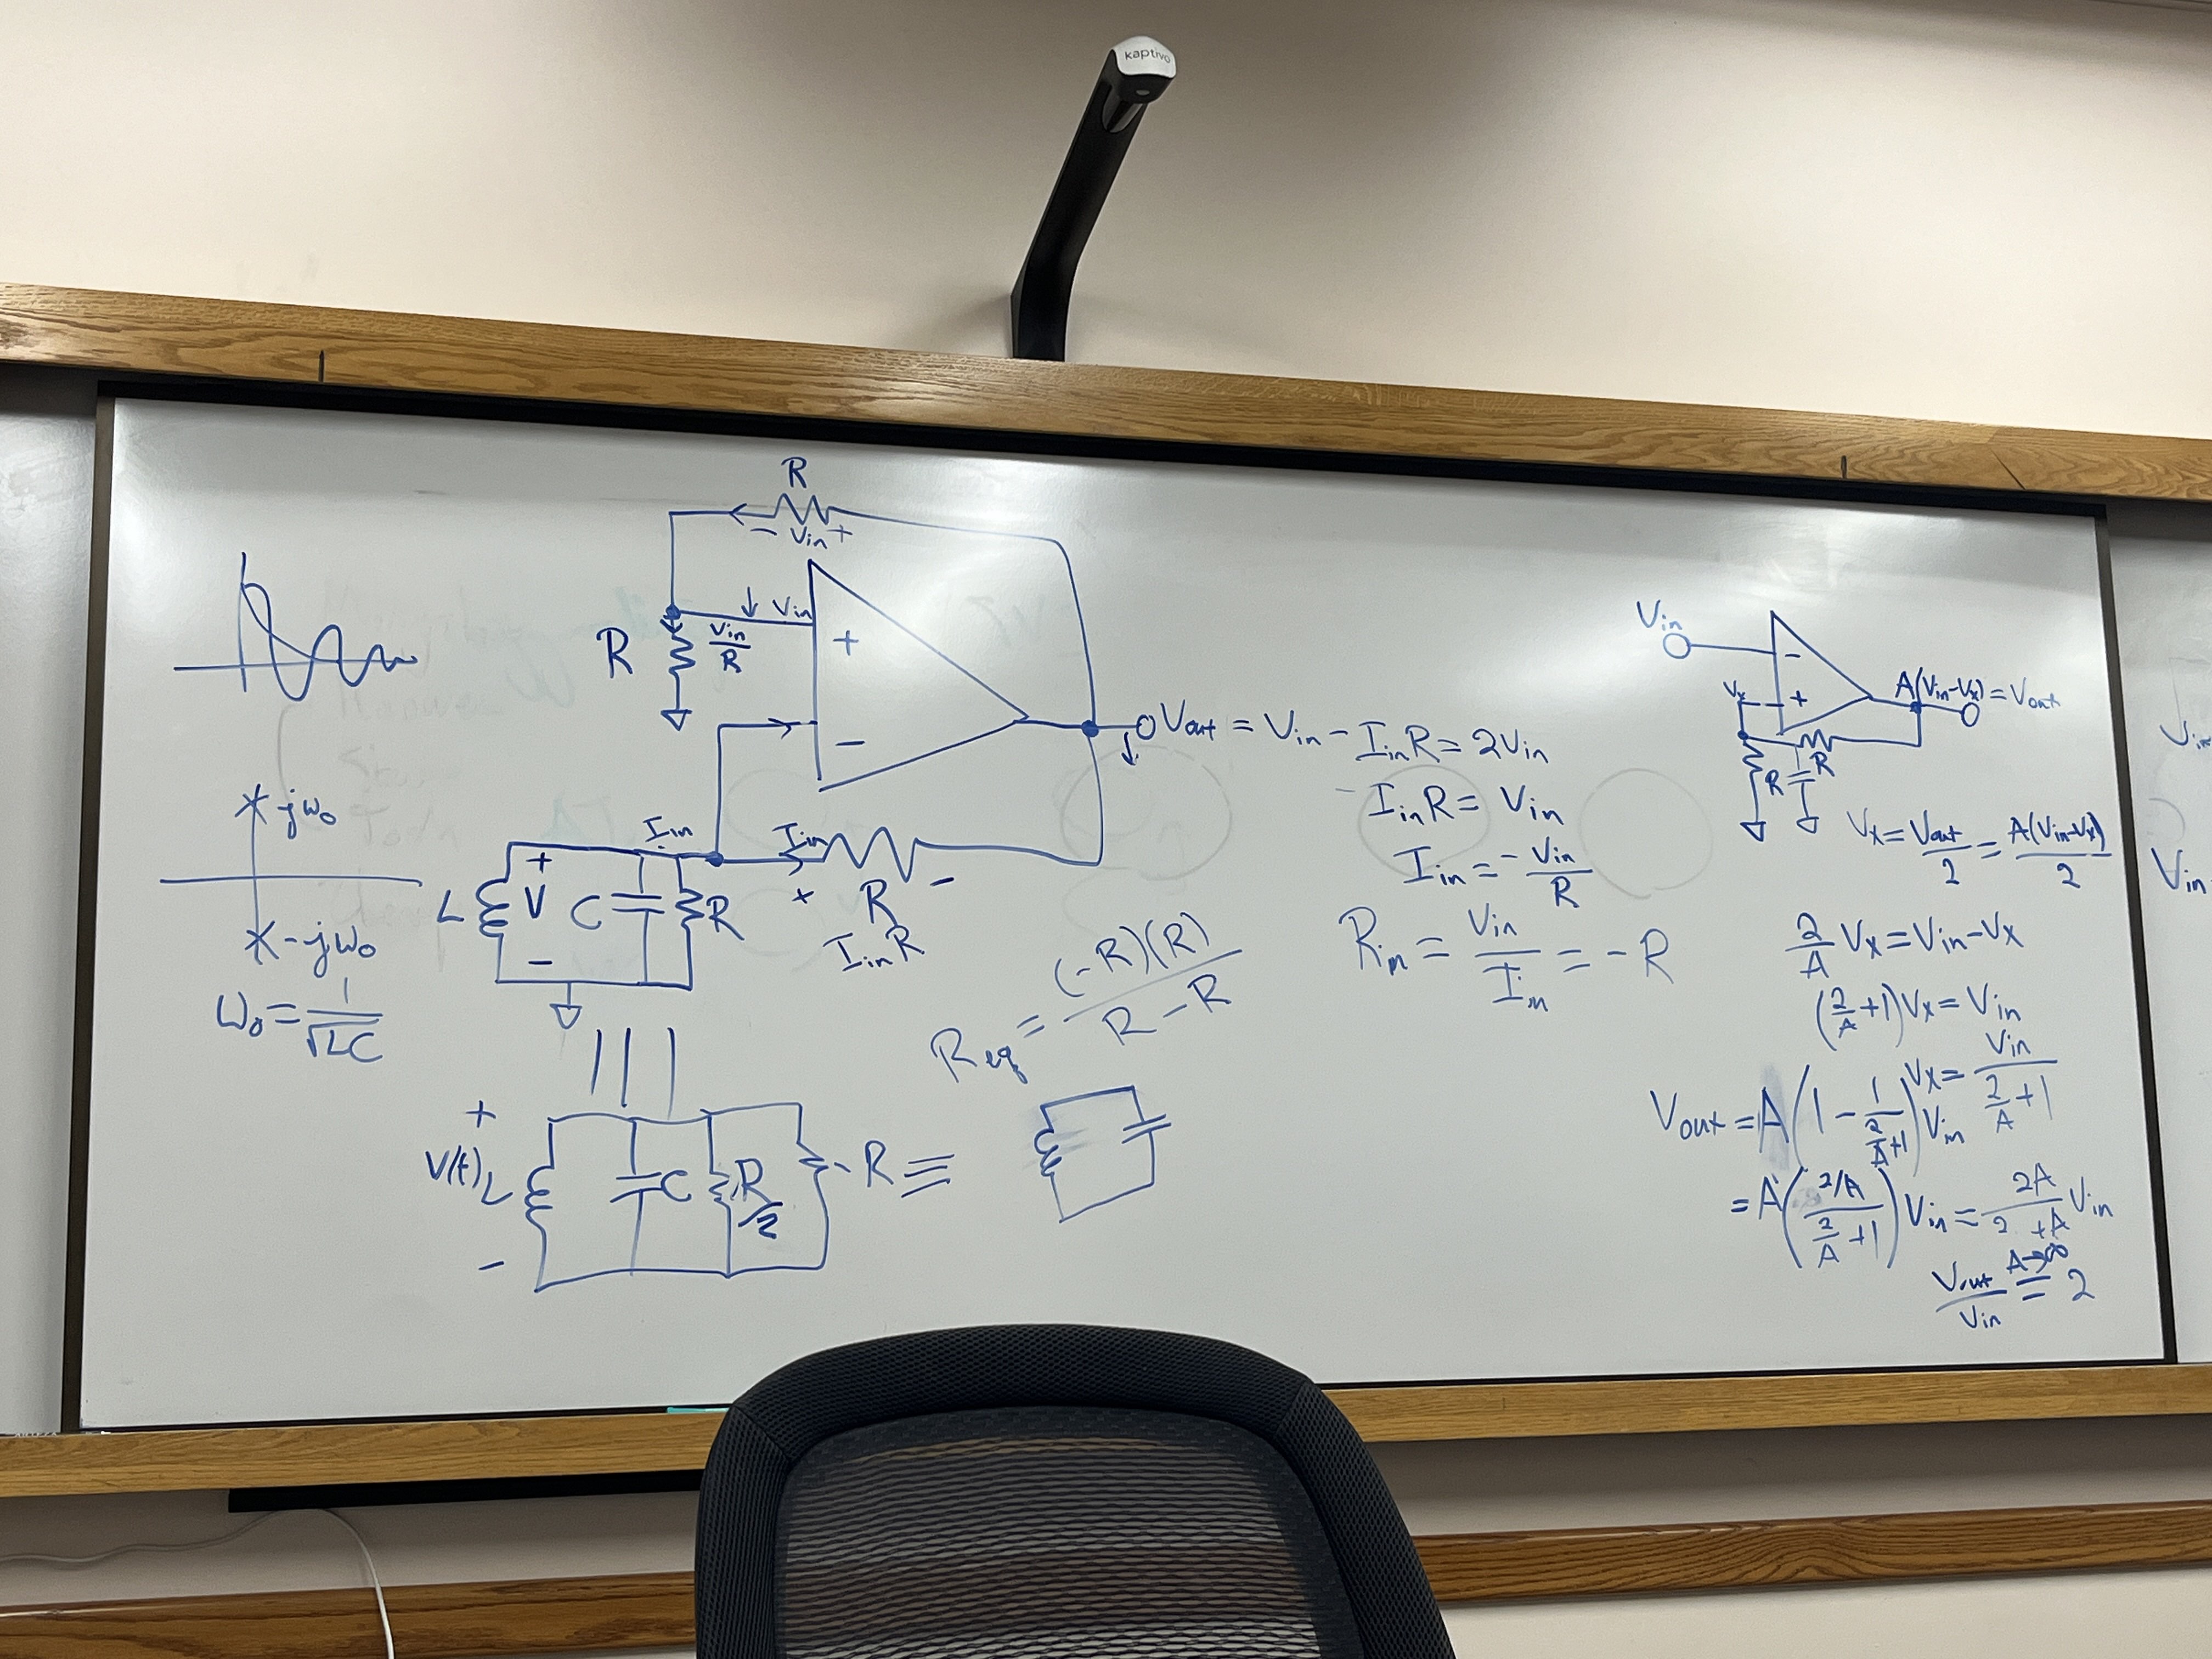 kaptivo
R
- Vin +
Vin
+
R
Vin/R
-
Vout = Vin - IinR = 2Vin
- IinR = Vin
Iin = -Vin/R
Rin = Vin/Iin = -R
Iin
Iin
+ R -
IinR
L
+
V
-
C
R
jω₀
-jω₀
ω₀ = 1/√LC
Req = (-R)(R)/R - R
+
V(t)
-
L
C
R/2
-R ≡
Vin
-
Vx
+
A(Vin-Vx) = Vout
R
R
Vx = Vout/2 = A(Vin-Vx)/2
2/A Vx = Vin - Vx
(2/A + 1)Vx = Vin
Vx = Vin/(2/A + 1)
Vout = A(1 - 1/(2/A + 1))Vin
= A((2/A)/(2/A + 1))Vin = 2A/(2 + A) Vin
Vout/Vin = 2
A→∞
Vin